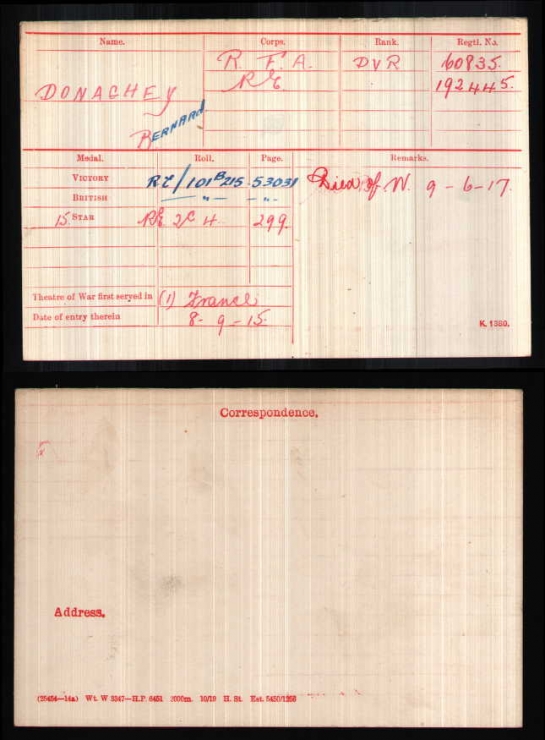 Name. Corps. Rank. Regtl. No.
R. F. A. DVR 60835.
DONAGHEY RE 192445.
BERNARD
Medal. Roll. Page. Remarks.
VICTORY RE/101B215 53031 Died of W. 9-6-17.
BRITISH —"— —"—
15 STAR RFA 2C 4. 299.
Theatre of War first served in (1) France
Date of entry therein 8-9-15
K. 1380.
Correspondence.
Address.
(25454—14a) Wt. W 3247—H.P. 6451 2000m. 10/19 H. St. Est. 5450/1250